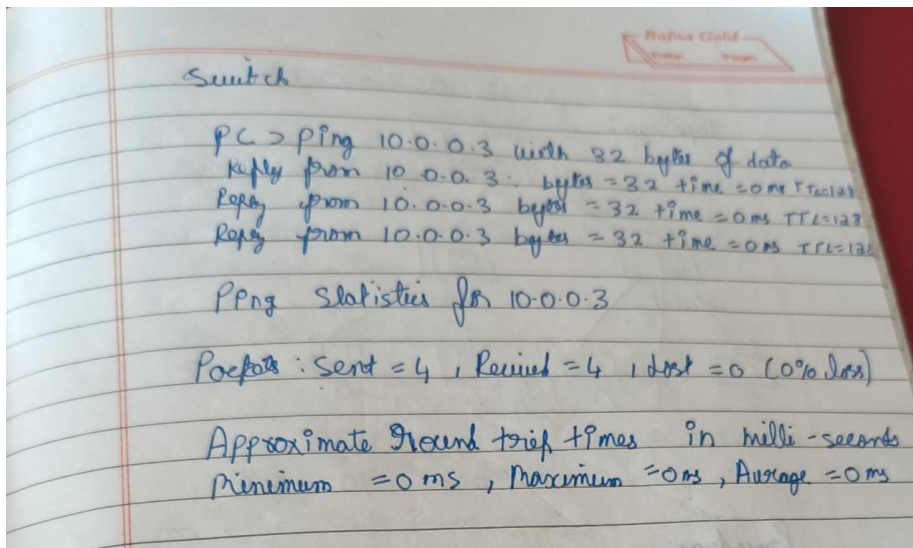 Bafna Gold
Date: Page:
Switch
PC > Ping 10.0.0.3 with 32 bytes of data
Reply from 10.0.0.3: bytes = 32 time = 0ms TTL=128
Reply from 10.0.0.3 bytes = 32 time = 0ms TTL=128
Reply from 10.0.0.3 bytes = 32 time = 0ms TTL=128
Ping Statistics for 10.0.0.3
Packets : Sent = 4 , Received = 4 , Lost = 0 (0% loss)
Approximate round trip times in milli-seconds
Minimum = 0 ms , Maximum = 0 ms , Average = 0 ms